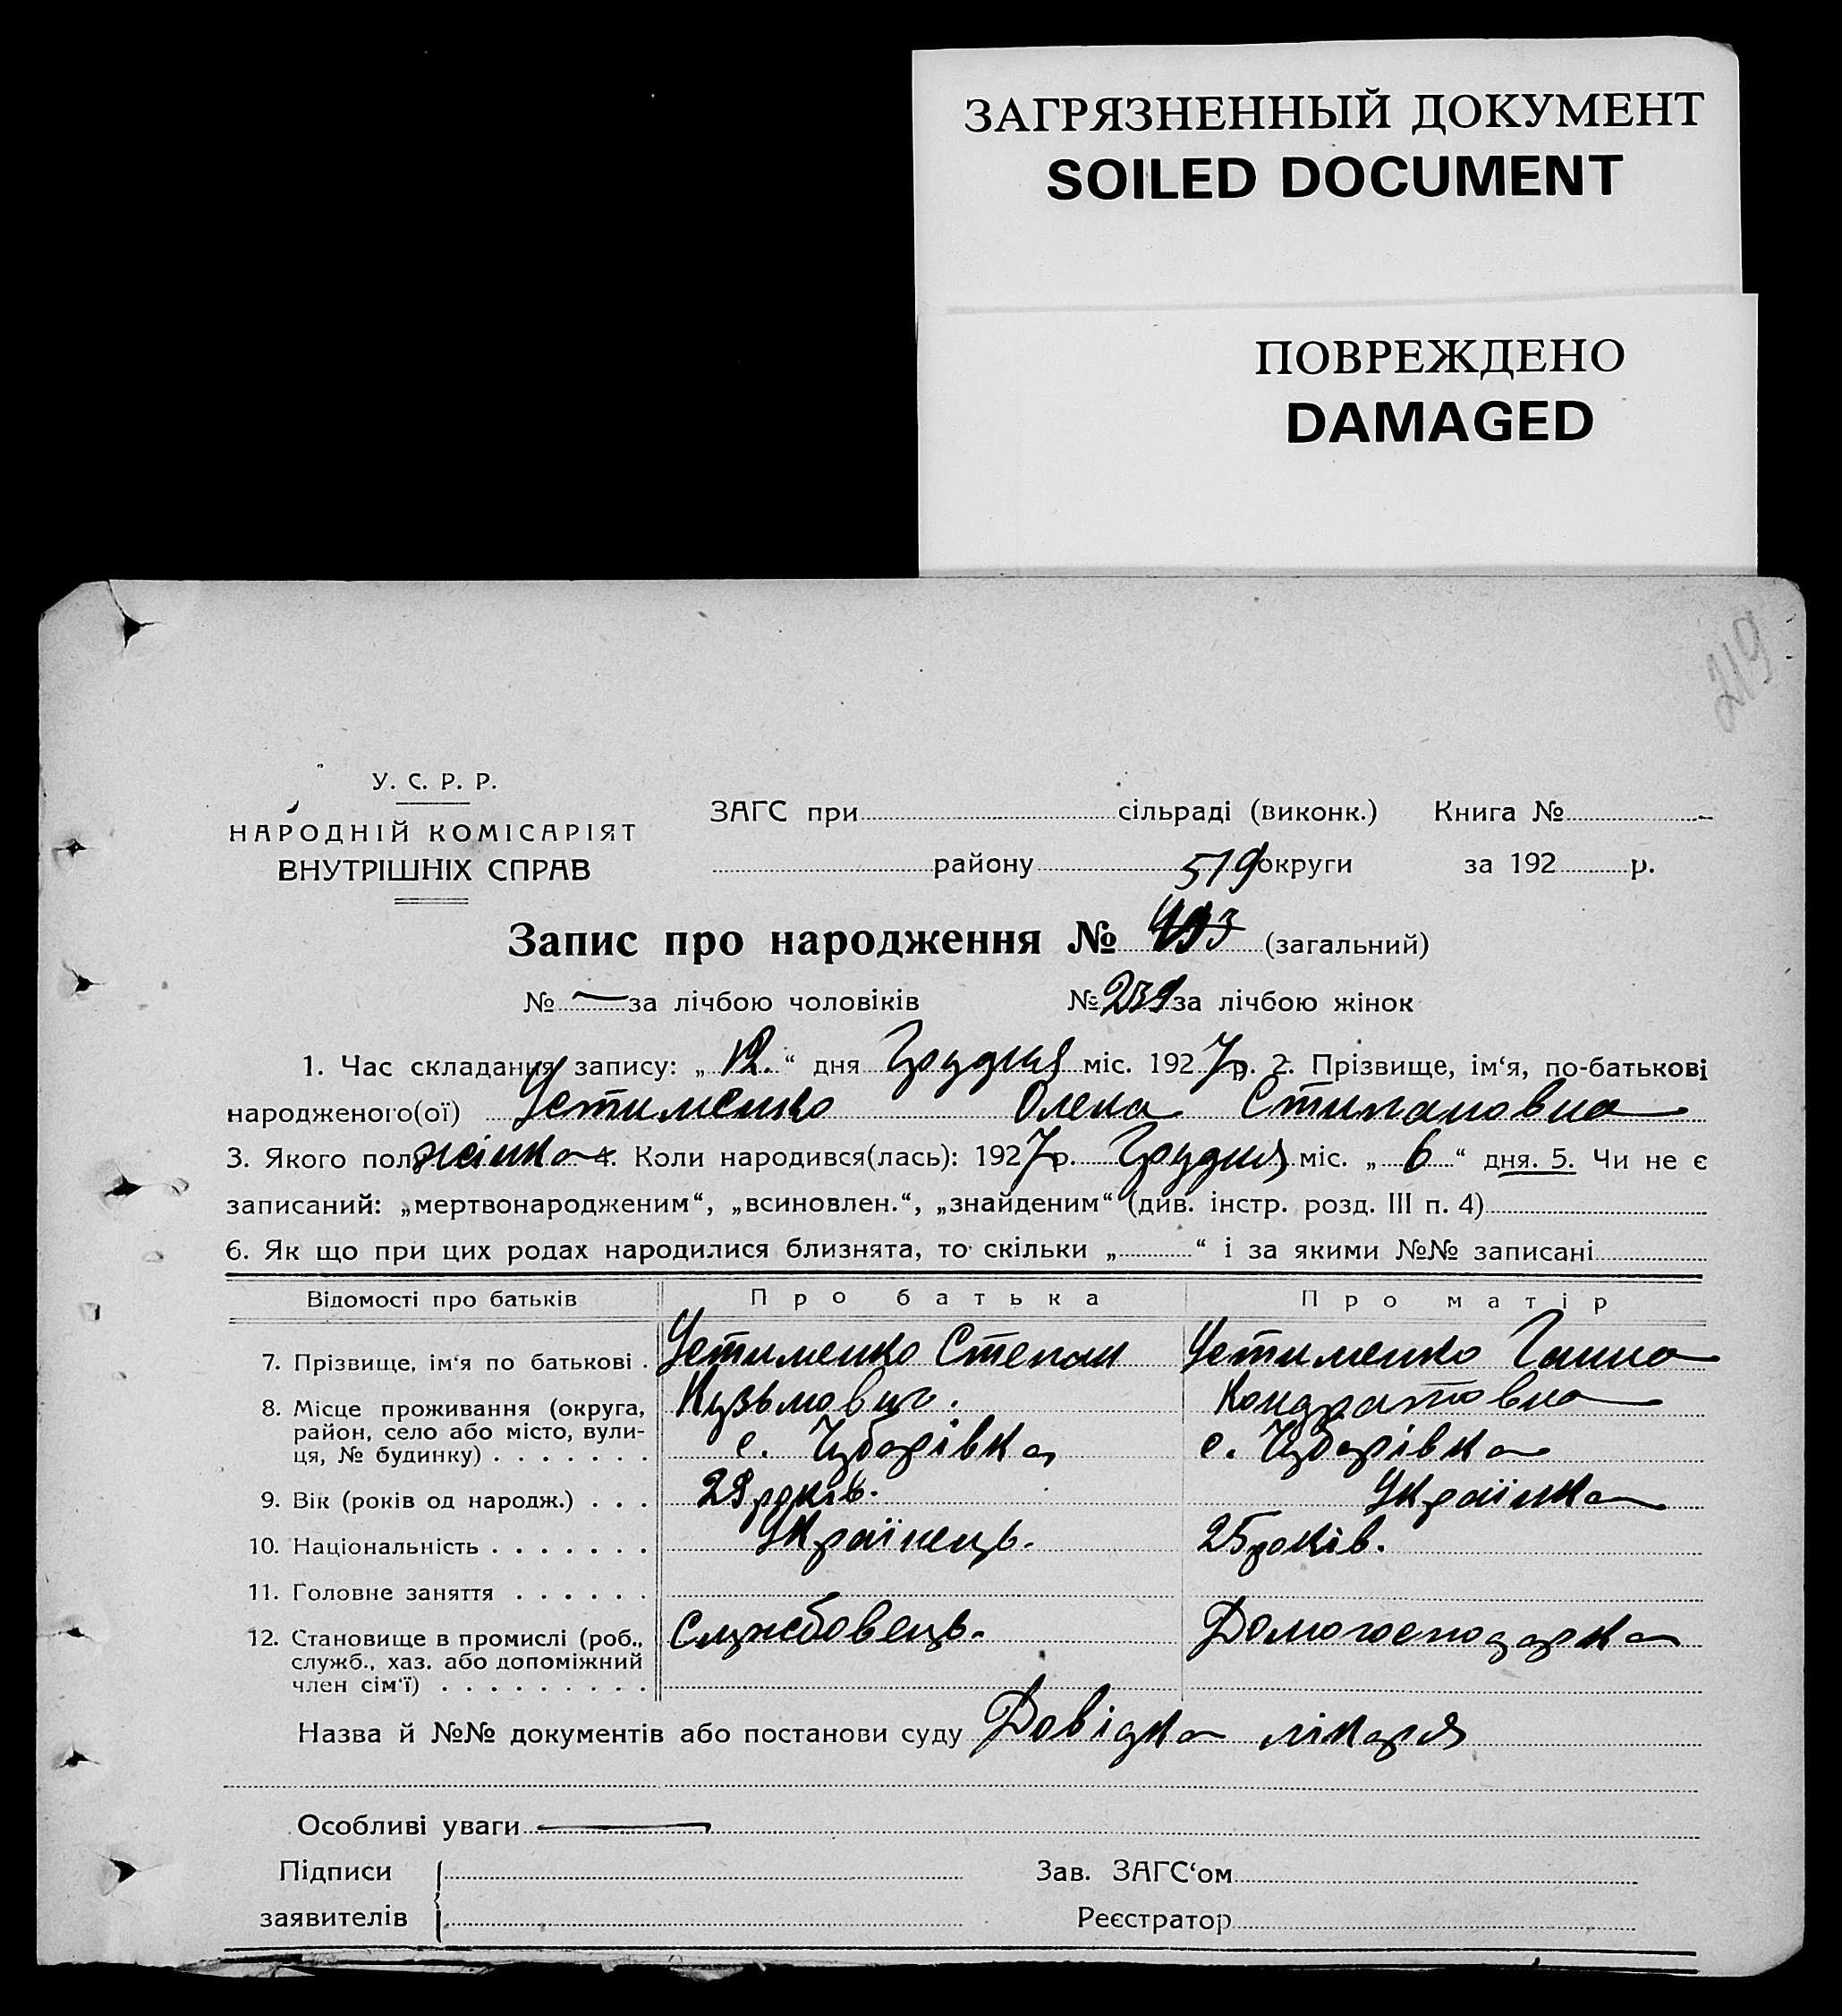 ЗАГРЯЗНЕННЫЙ ДОКУМЕНТ
SOILED DOCUMENT
ПОВРЕЖДЕНО
DAMAGED
219
У. С. Р. Р.
НАРОДНІЙ КОМІСАРІЯТ
ВНУТРІШНІХ СПРАВ
ЗАГС при сільраді (виконк.) Книга №
району округи за 192 р.
519
Запис про народження № 493 (загальний)
№ — за лічбою чоловіків № 239 за лічбою жінок
1. Час складання запису: „12.“ дня Грудня міс. 1927 р. 2. Прізвище, ім‘я, по-батькові
народженого(ої) Устименко Олена Стипановна
3. Якого полу жінка 4. Коли народився(лась): 1927 р. Грудня міс. „6“ дня. 5. Чи не є
записаний: „мертвонародженим“, „всиновлен.“, „знайденим“ (див. інстр. розд. III п. 4)
6. Як що при цих родах народилися близнята, то скільки „ “ і за якими №№ записані
Відомості про батьків Про батька Про матір
7. Прізвище, ім‘я по батькові . Устименко Степан Устименко Ганна
Кузьмович. Кондратовна
8. Місце проживання (округа,
район, село або місто, вули-
ця, № будинку) . . . . . . . с. Чубарівка с. Чубарівка
9. Вік (років од народж.) . . . 28 років. Українка
10. Національність . . . . . . . Українець. 25 років.
11. Головне заняття . . . . . .
12. Становище в промислі (роб., Службовець. Домогосподарка
служб., хаз. або допоміжний
член сім‘ї) . . . . . . . . .
Назва й №№ документів або постанови суду Довідка лікаря
Особливі уваги —
Підписи Зав. ЗАГС‘ом
заявителів Реєстратор